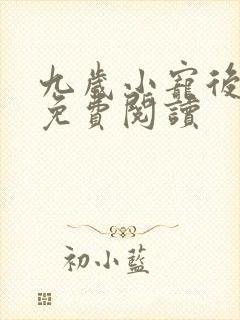 九歲小寵後
免費閱讀
初小藍